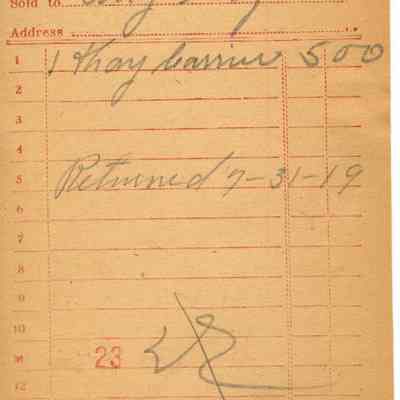 Sold to
Address
1 1 Khay Carrier 500
2
3
4
5 Returned 7-31-19
6
7
8
9
10
11 23
12